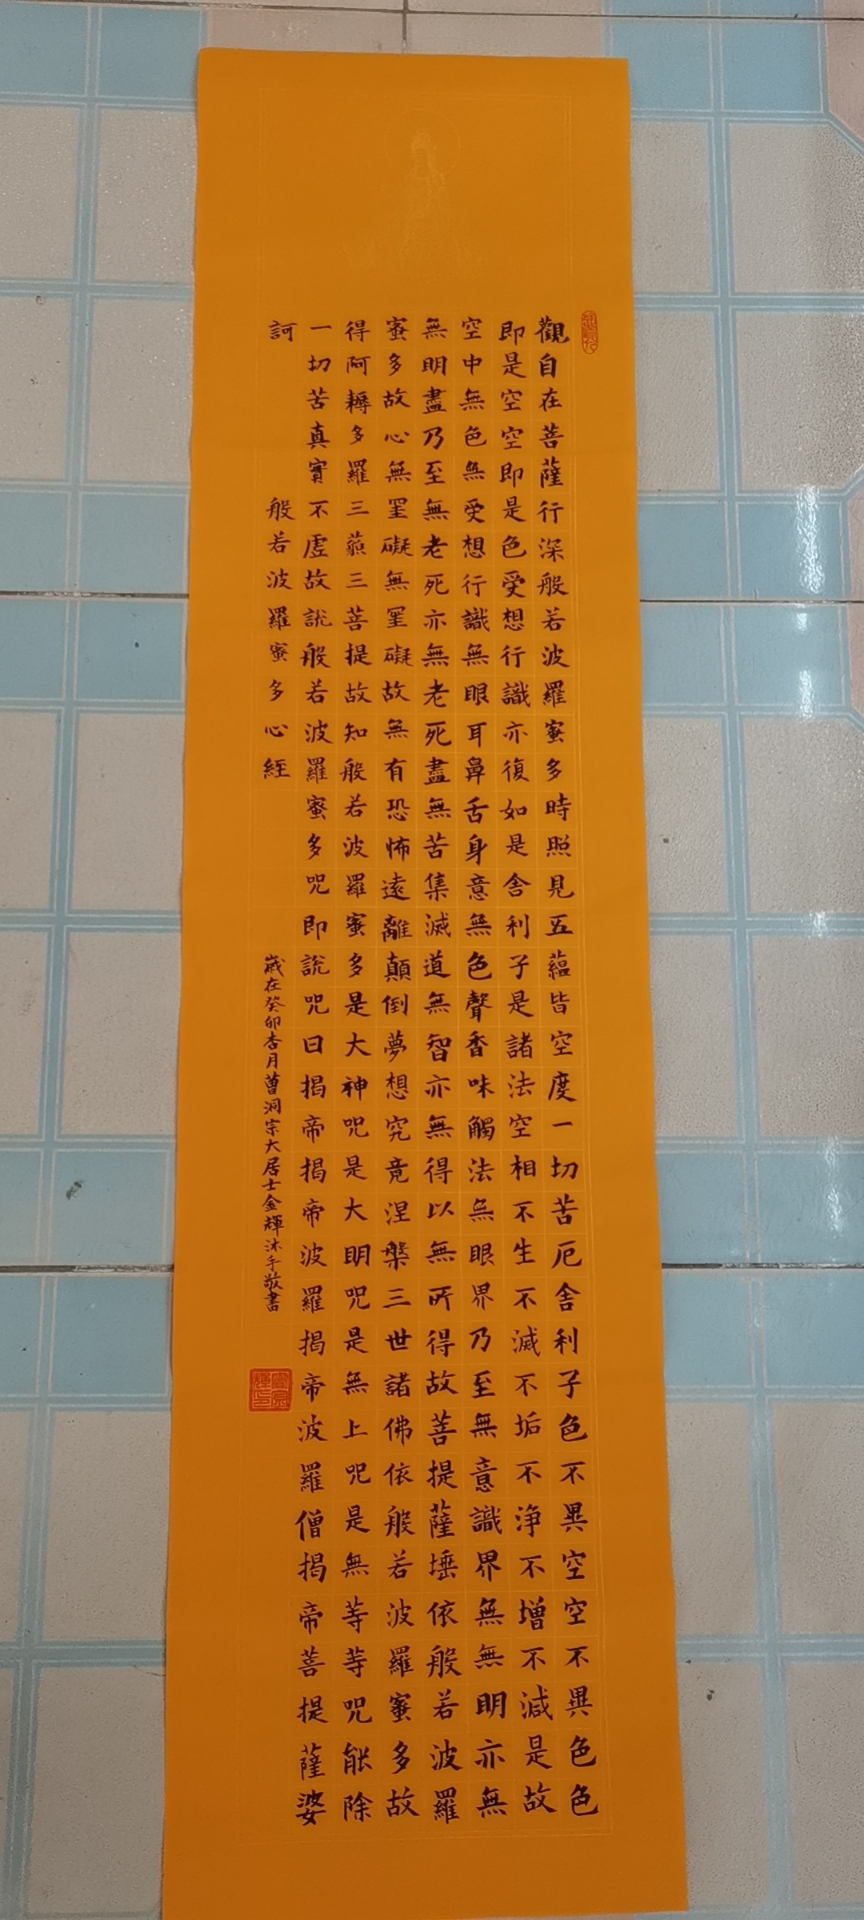 觀自在菩薩行深般若波羅蜜多時照見五蘊皆空度一切苦厄舍利子色不異空空不異色色
即是空空即是色受想行識亦復如是舍利子是諸法空相不生不滅不垢不淨不增不減是故
空中無色無受想行識無眼耳鼻舌身意無色聲香味觸法無眼界乃至無意識界無無明亦無
無明盡乃至無老死亦無老死盡無苦集滅道無智亦無得以無所得故菩提薩埵依般若波羅
蜜多故心無罣礙無罣礙故無有恐怖遠離顛倒夢想究竟涅槃三世諸佛依般若波羅蜜多故
得阿耨多羅三藐三菩提故知般若波羅蜜多是大神咒是大明咒是無上咒是無等等咒能除
一切苦真實不虛故說般若波羅蜜多咒即說咒曰揭帝揭帝波羅揭帝波羅僧揭帝菩提薩婆
訶 般若波羅蜜多心經
歲在癸卯杏月曹洞宗大居士金輝沐手敬書